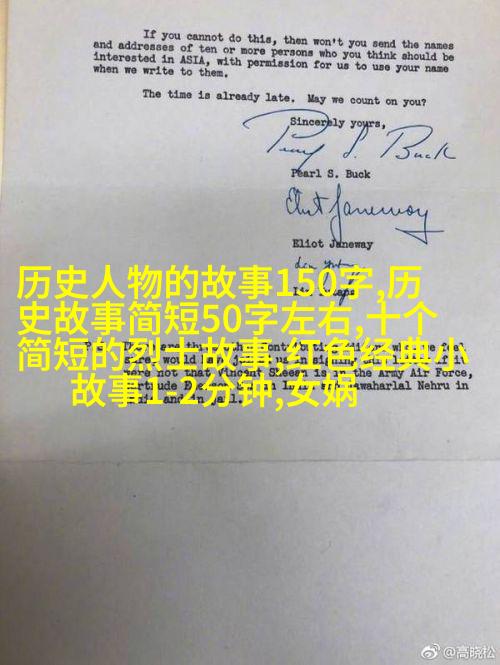 If you cannot do this, then won't you send the names
and addresses of ten or more persons who you think should be
interested in ASIA, with permission for us to use your name
when we write to them.
The time is already late. May we count on you?
Sincerely yours,
Pearl S. Buck
Pearl S. Buck
Eliot Janeway
Eliot Janeway
历史人物的故事150字,历
史故事简短50字左右,十个
简短的烈士故事,红色经典小
故事1-2分钟,女娲
here not that Vincent Sheean is in the Army Air Force,
Nehru in
@高晓松